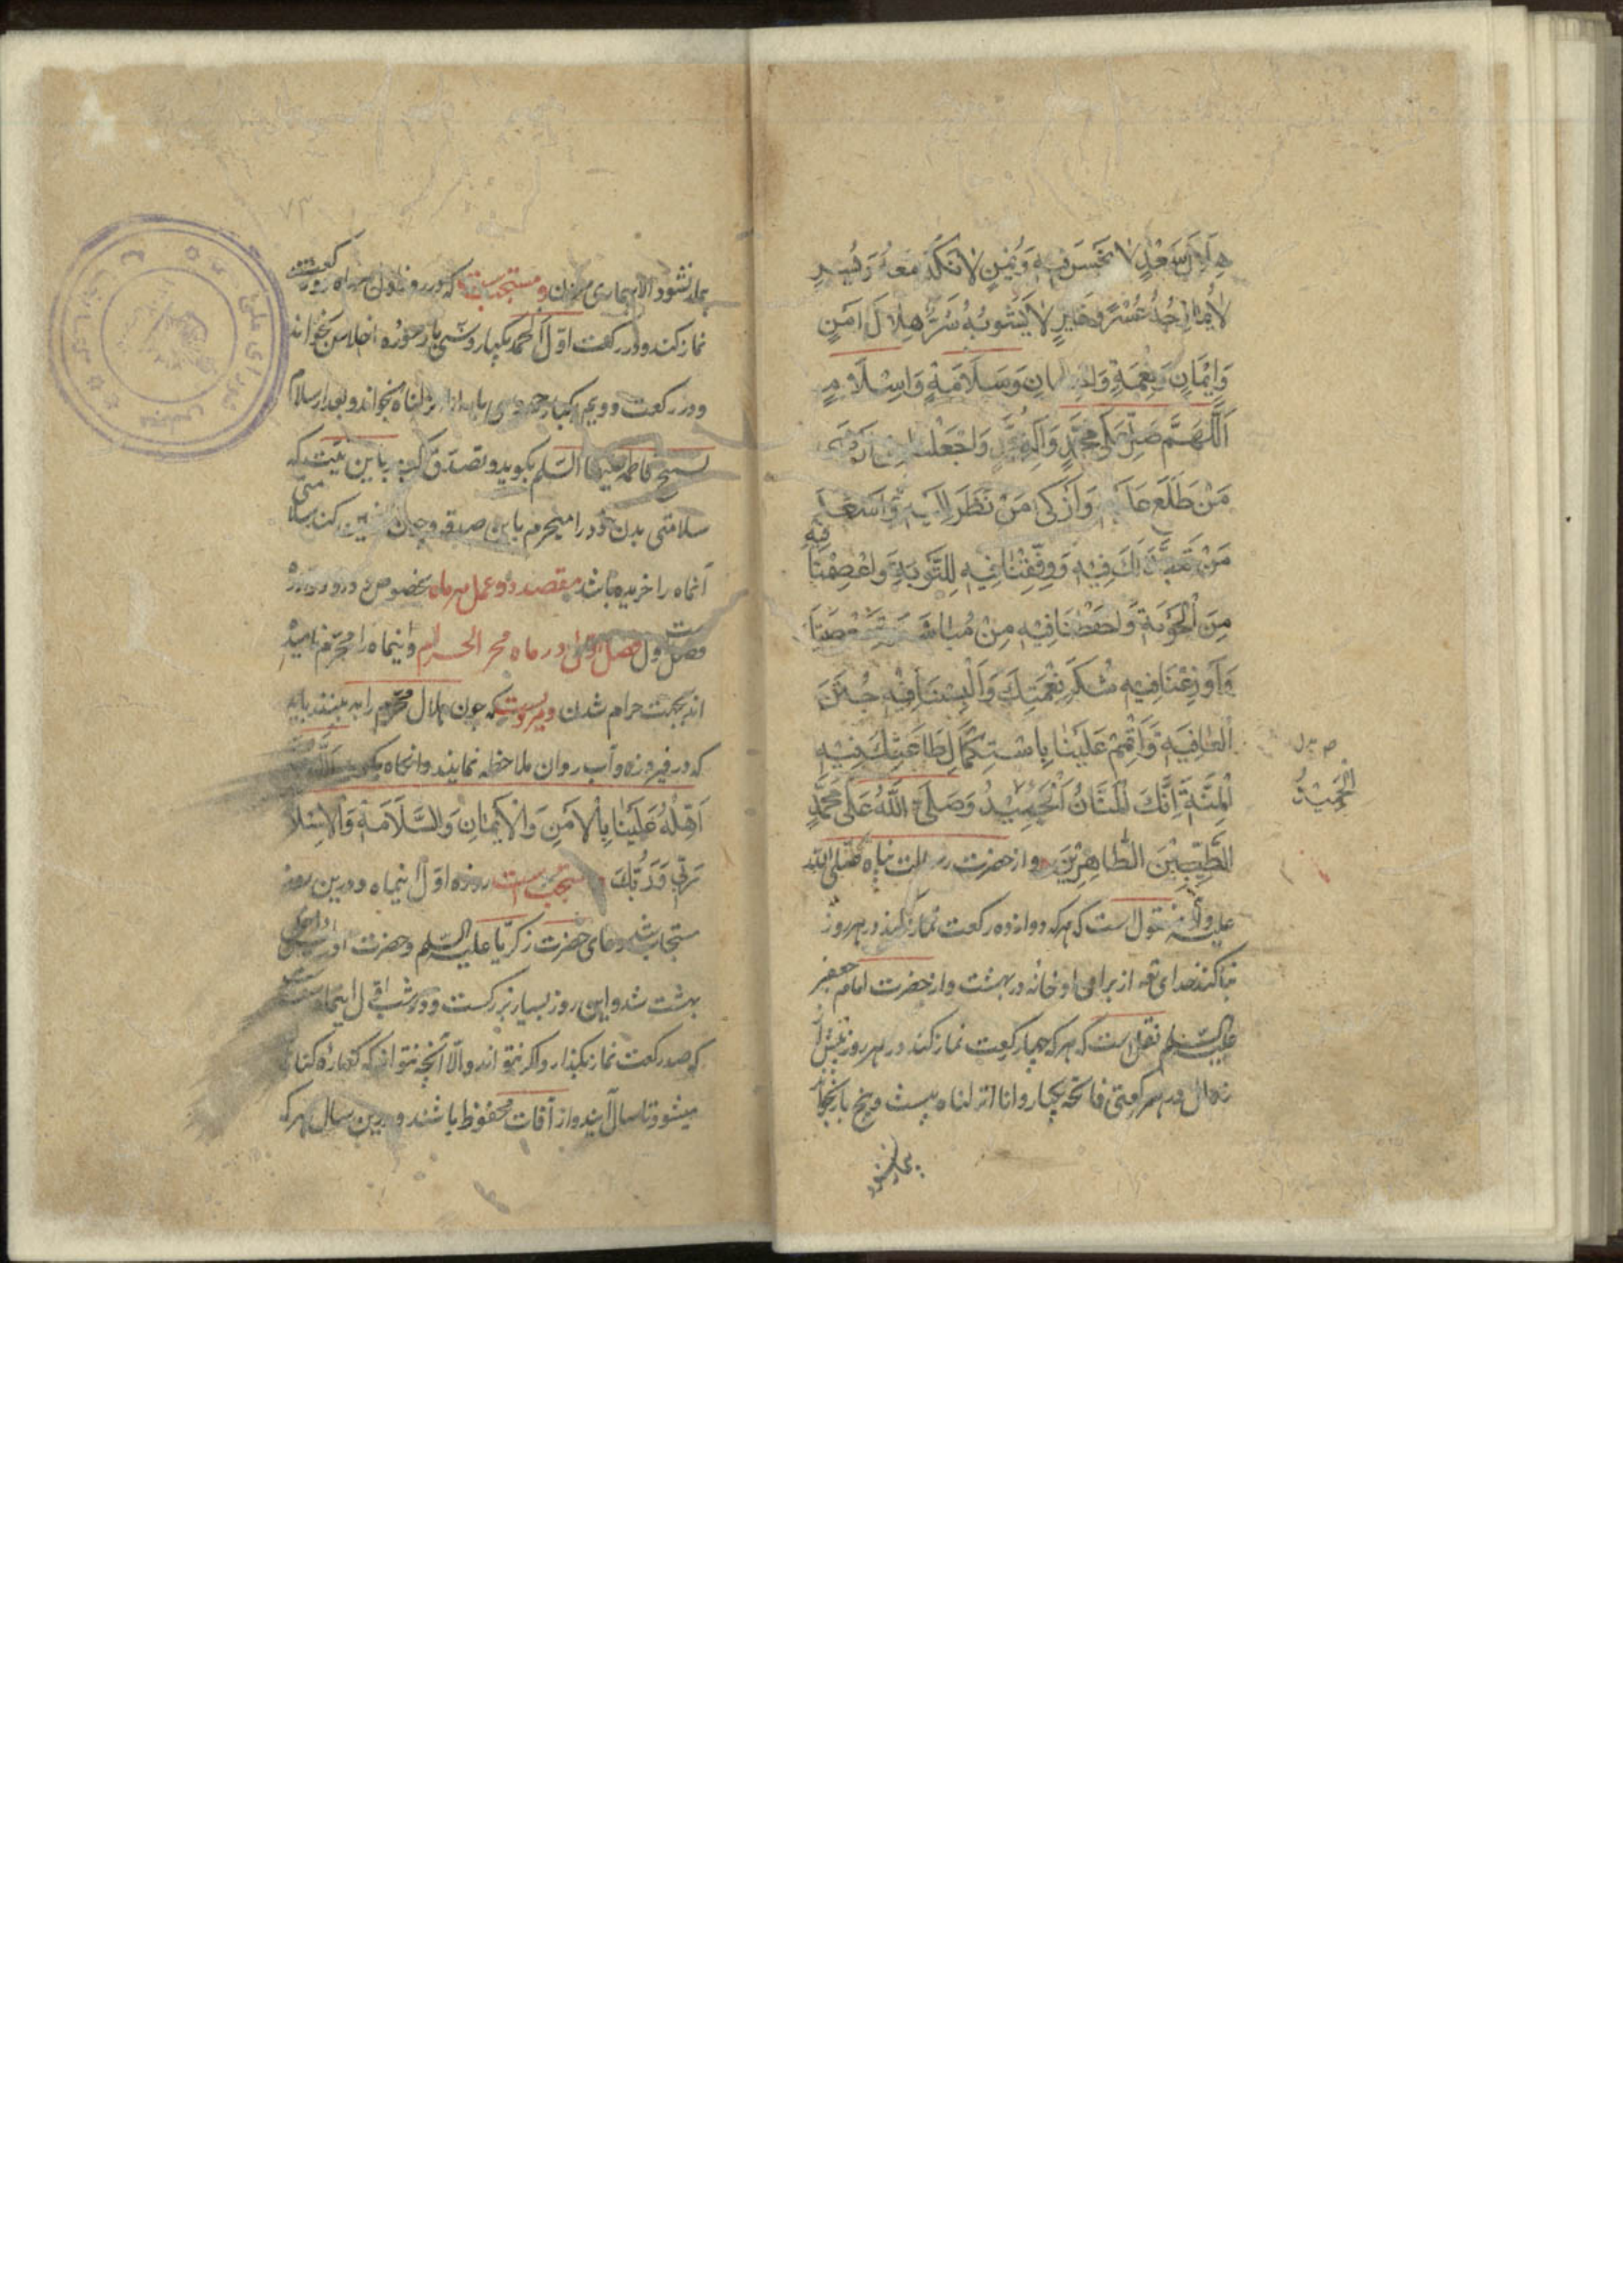 هِلَالَ سَعْدٍ لَا نَحْسَ فِيهِ وَيُمْنٍ لَا نَكَدَ مَعَهُ وَيُسْرٍ
لَا يُمَازِجُهُ عُسْرٌ وَخَيْرٍ لَا يَشُوبُهُ شَرٌّ هِلَالَ اَمْنٍ
وَاِيْمَانٍ وَنِعْمَةٍ وَاِحْسَانٍ وَسَلَامَةٍ وَاِسْلَامٍ
اَللّٰهُمَّ صَلِّ عَلٰى مُحَمَّدٍ وَاٰلِ مُحَمَّدٍ وَاجْعَلْنَا مِنْ اَرْضٰى
مَنْ طَلَعَ عَلَيْهِ وَاَزْكٰى مَنْ نَظَرَ اِلَيْهِ وَاَسْعَدَ
مَنْ تَعَبَّدَ لَكَ فِيهِ وَوَفِّقْنَا فِيهِ لِلتَّوْبَةِ وَاعْصِمْنَا فِيهِ
مِنَ الْحَوْبَةِ وَاحْفَظْنَا فِيهِ مِنْ مُبَاشَرَةِ مَعْصِيَتِكَ
وَاَوْزِعْنَا فِيهِ شُكْرَ نِعْمَتِكَ وَاَلْبِسْنَا فِيهِ جُنَنَ
الْعَافِيَةِ وَاَتْمِمْ عَلَيْنَا بِاسْتِكْمَالِ طَاعَتِكَ فِيهِ
الْمِنَّةَ اِنَّكَ الْمَنَّانُ الْحَمِيدُ وَصَلَّى اللّٰهُ عَلٰى مُحَمَّدٍ
الطَّيِّبِيْنَ الطَّاهِرِيْنَ و از حضرت رسالت پناه صلّی الله
علیه وآله منقول است که هر که دوازده رکعت نماز کند در هر روز
بنا کند خدای تعه از برای او خانه در بهشت و از حضرت امام جعفر
علیه السّلم نقل است که هر که چهار رکعت نماز کند در هر روز پیش از
زوال در هر رکعتی فاتحه یکبار و انا انزلناه بیست و پنج بار بخواند
بیمار نشود
بیمار نشود الا بیماری مردن و مستحب است که در روز اول هر ماه دو رکعت
نماز کند و در رکعت اوّل الحمد یکبار و سی بار سوره اخلاص بخواند
و در رکعت دویم یکبار حمد و سی بار انا انزلناه بخواند و بعد از سلام
تسبیح فاطمه علیها السّلم بگوید و تصدّق کند باین نیت که
سلامتی بدن خود را میخرم باین صدقه و چون چنین کند سلامتی
آنماه را خریده باشد مقصد دو عمل هر ماه مخصوص در و
فصل اول در ماه محرّم الحرام و اینماه را محرّم نامیده
اند بجهت حرام شدن و مرویست که چون هلال محرّم را به بینند باید
که در فیروزه و آب روان ملاحظه نمایند و آنگاه بگوید اَللّٰهُمَّ
اَهِلَّهُ عَلَيْنَا بِالْاَمْنِ وَالْاِيْمَانِ وَالسَّلَامَةِ وَالْاِسْلَامِ
رَبِّي وَرَبُّكَ و مستحب است روزه اوّل اینماه و درین روز
مستجاب شد دعای حضرت زکریّا علیه السّلم و حضرت ادریس داخل
بهشت شد و این روز بسیار بزرگست و در شب اوّل اینماه
که صد رکعت نماز بگذارد و اگر نتواند و الّا آنچه تواند که کفاره گناه
میشود تا سال آینده از آفات محفوظ باشند و درین سال هر که